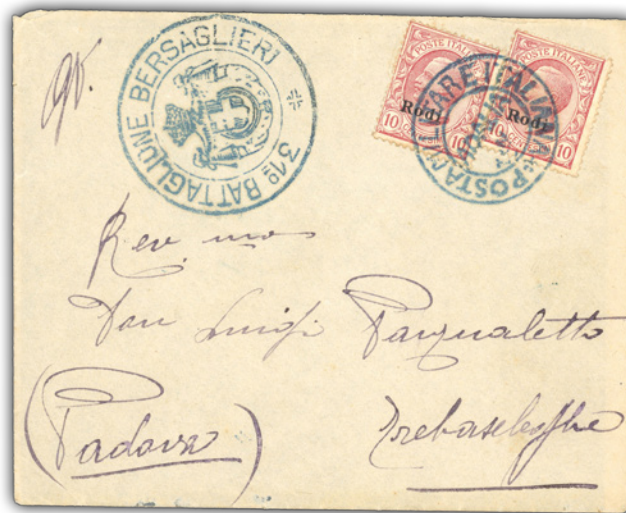 31º BATTAGLIONE BERSAGLIERI
POSTE ITALIANE
Rodi
10 CENT. 10
POSTE ITALIANE
Rodi
10 CENT. 10
POSTA MILITARE ITALIANA
Rev. mo
Don Luigi Pasqualetto
(Padova) Trebaseleghe